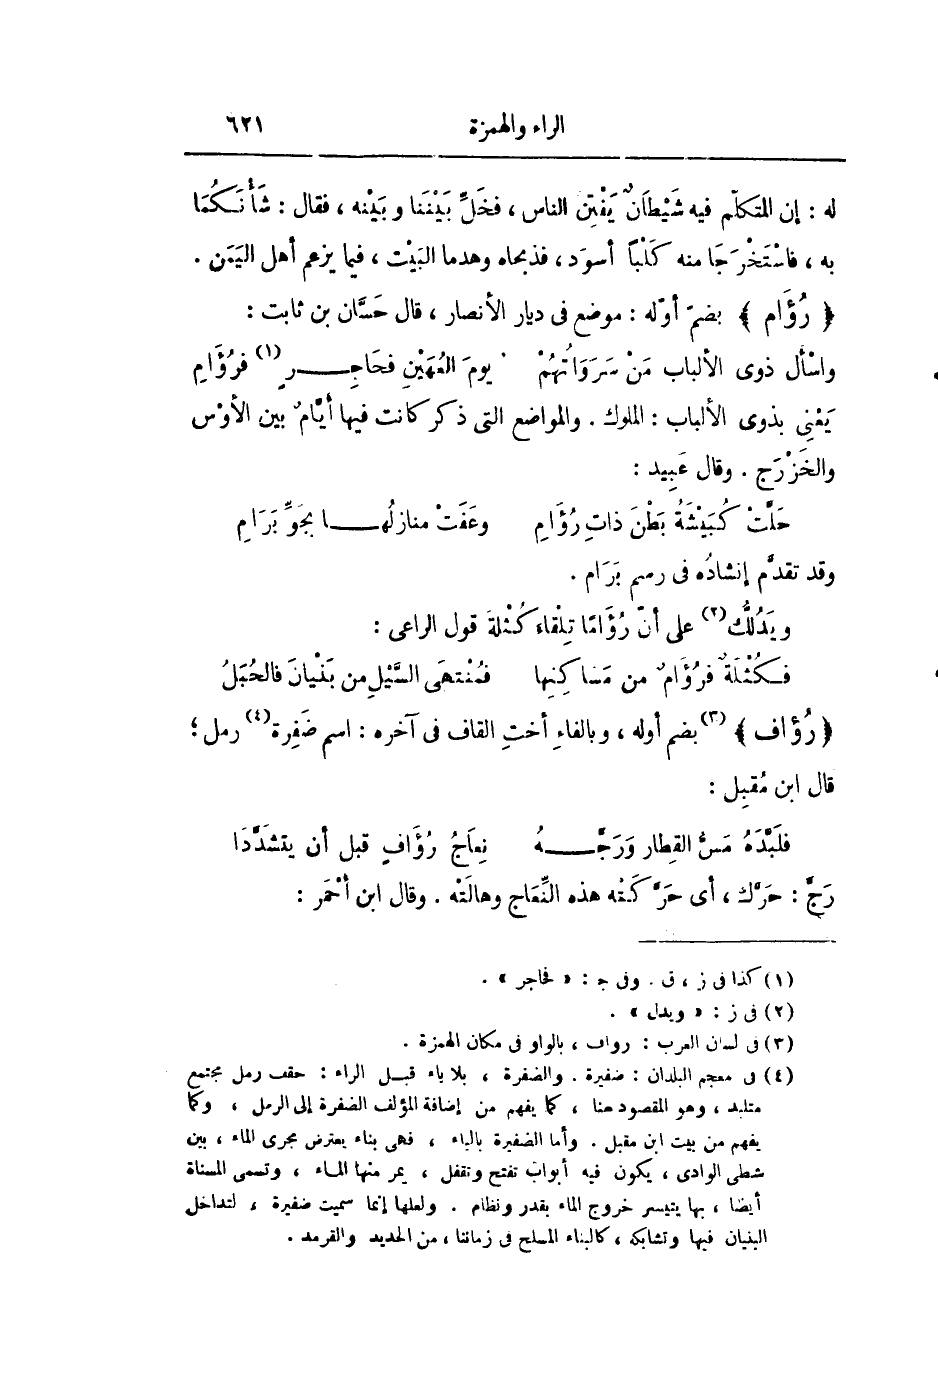 الراء والهمزة ٦٢١
له : إن المتكلّم فيه شَيْطَانٌ يَفْتِن الناس ، فخَلِّ بَيْنَنَا وبَيْنه ، فقال : شَأْنَكُمَا
به ، فاسْتَخْرَجَا منه كَلْبًا أسوَد ، فذبحاه وهدما البَيْت ، فيما يزعم أهل اليَمَن .
﴿ رُؤَام ﴾ بضمّ أوّله : موضع فى ديار الأنصار ، قال حَسَّان بن ثابت :
واسْأل ذوى الألباب مَنْ سَرَوَاتُهُمْ يومَ العُهَيْنِ فحَاجِرٍ (١) فرُؤَامِ
يَعْنِى بذوى الألباب : الملوك . والمواضع التى ذكر كانت فيها أيّامٌ بين الأوْس
والخَزْرَج . وقال عَبِيد :
حَلَّتْ كُبَيْشَةُ بَطْنَ ذاتِ رُؤَامِ وعَفَتْ منازلُها بِجَوِّ بَرَامِ
وقد تقدَّم إنشادُه فى رسم بَرَام .
ويَدُلُّك (٢) على أنّ رُؤَامًا تِلْقاءَ كُثْلةَ قول الراعى :
فكُثْلَةٌ فرُؤَامٌ من مَساكِنِها فمُنْتهَى السَّيْلِ من بَنْيانَ فالحُبَلُ
﴿ رُؤاف ﴾ (٣) بضم أوله ، وبالفاءِ أختِ القاف فى آخره : اسم ضَفِرة (٤) رمل ؛
قال ابن مُقبِل :
فلَبَّدَهُ مَسُّ القِطار وَرَجَّهُ نِعَاجُ رُؤَافٍ قبل أن يتشدَّدَا
رَجَّ : حَرَّك ، أى حَرَّكَتْه هذه النِّعَاج وهالَتْه . وقال ابن أحْمَر :
(١) كذا فى ز ، ق . وفى ج : « فخاجر » .
(٢) فى ز : « ويدل » .
(٣) فى لسان العرب : رواف ، بالواو فى مكان الهمزة .
(٤) فى معجم البلدان : ضفيرة . والضفرة ، بلا ياء قبل الراء : حقف رمل مجتمع
متلبد ، وهو المقصود هنا ، كما يفهم من إضافة المؤلف الضفرة إلى الرمل ، وكما
يفهم من بيت ابن مقبل . وأما الضفيرة بالياء ، فهى بناء يعترض مجرى الماء ، بين
شطى الوادى ، يكون فيه أبواب تفتح وتقفل ، يمر منها الماء ، وتسمى المسناة
أيضا ، بها يتيسر خروج الماء بقدر ونظام . ولعلها إنما سميت ضفيرة ، لتداخل
البنيان فيها وتشابكه ، كالبناء المسلح فى زماننا ، من الحديد والقرمد .